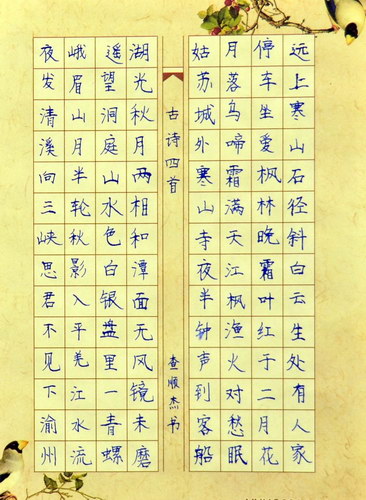 远上寒山石径斜白云生处有人家
停车坐爱枫林晚霜叶红于二月花
月落乌啼霜满天江枫渔火对愁眠
姑苏城外寒山寺夜半钟声到客船
古诗四首
查顺杰书
湖光秋月两相和潭面无风镜未磨
遥望洞庭山水色白银盘里一青螺
峨眉山月半轮秋影入平羌江水流
夜发清溪向三峡思君不见下渝州